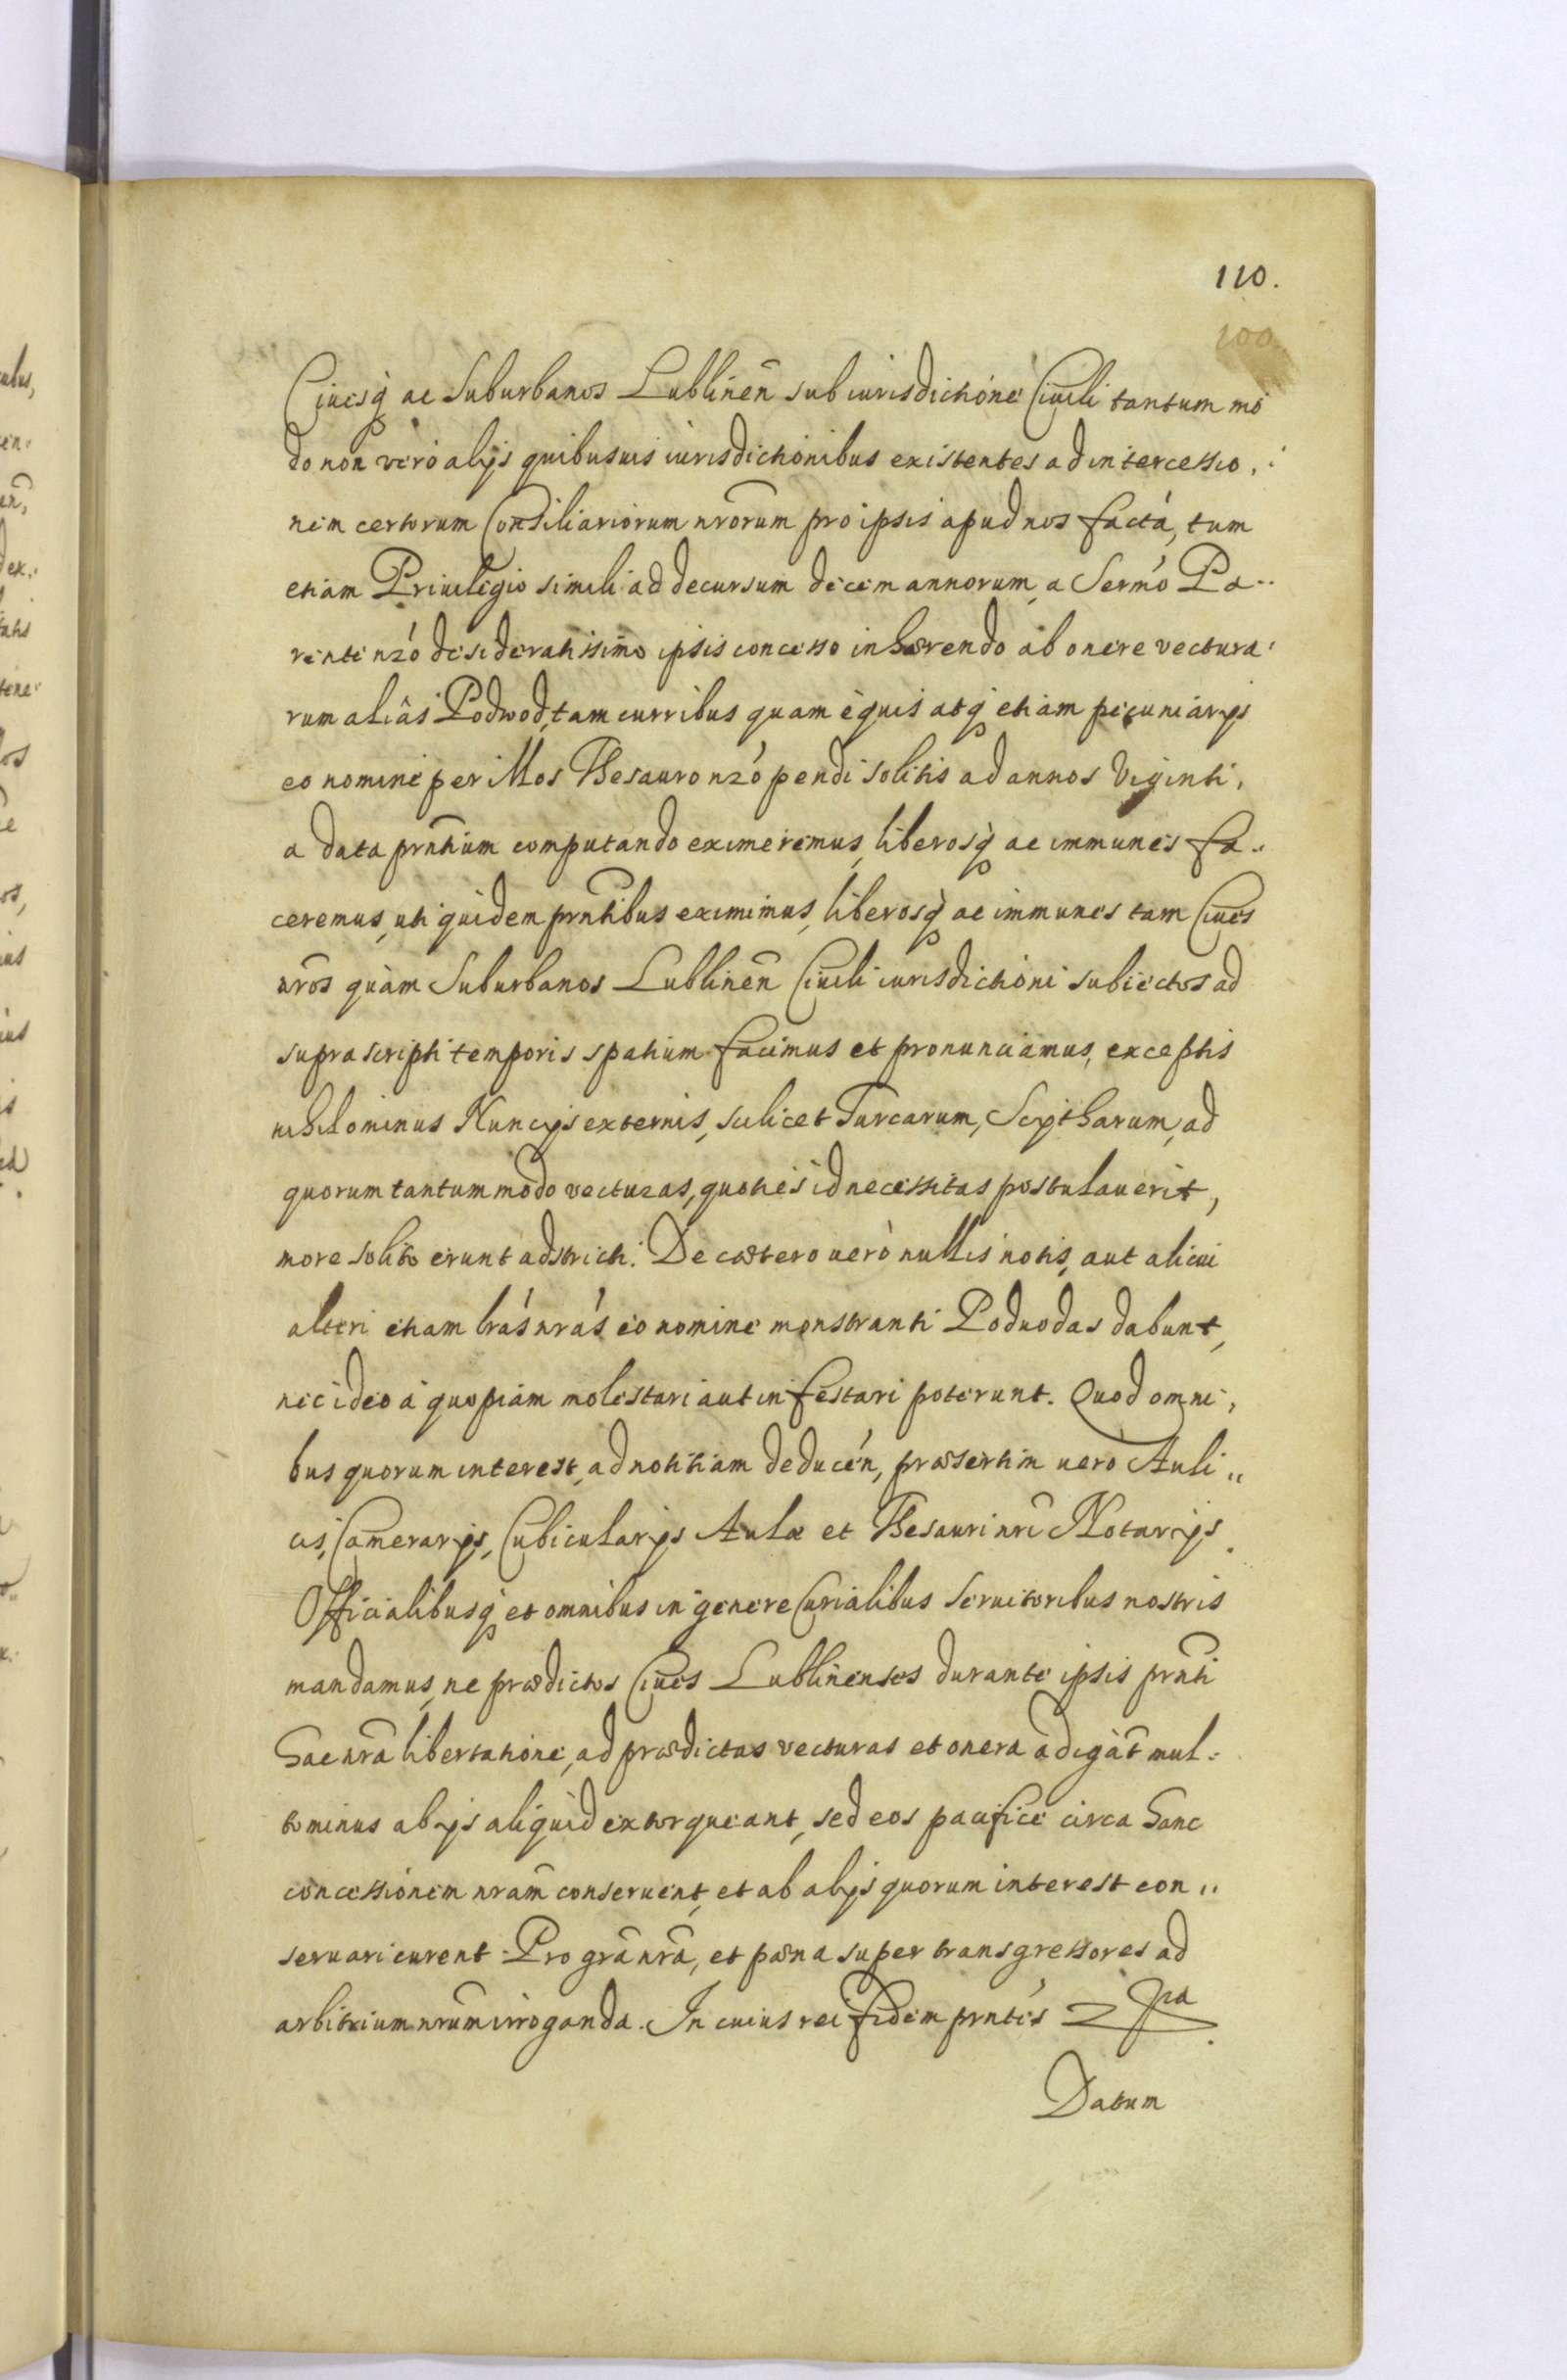 110.
100
Ciuesq́ ac Suburbanos Lublineñ sub iurisdictione Ciuili tantum mo
do non vero alijs quibusuis iurisdictionibus existentes ad intercessio,
nem certorum Consiliariorum nrõrum pro ipsis apud nos factá, tum
etiam Priuilegio simili ad decursum decem annorum, a Sermó Pa..
rente nró desideratissimo ipsis concesso inhærendo ab onere vectura:
rum aliâs Podwod, tam curribus quam equis atq́ etiam pecuniarijs
eo nomine per illos Thesauro nró pendi solitis ad annos viginti,
a data prñtium computando eximeremus, liberosq́ ac immunes fa..
ceremus, uti quidem prñtibus eximimus, liberosq́ ac immunes tam Ciues
nrõs quàm Suburbanos Lublineñ Ciuili iurisdictioni subiectos ad
suprascripti temporis spatium facimus et pronunciamus, exceptis
nihilominus Nuncijs externis, scilicet Turcarum, Scijtharum, ad
quorum tantummodo vecturas, quoties id necessitas postulauerit,
more solito erunt adstricti. De cætero uerò nullis notis, aut alicui
alteri etiam lrás nrás eo nomine monstranti Poduodas dabunt,
nec ideo a quopiam molestari aut infestari poterunt. Quod omni,
bus quorum interest, ad notitiam deducén, præsertim uero Auli"
cis, Camerarijs, Cubicularijs Aulæ et Thesauri nrĩ Notarijs.
Officialibusq́ et omnibus in genere Curialibus Seruitoribus nostris
mandamus, ne prædictos Ciues Lublinenses durante ipsis prñti
hac nrã libertatione, ad prædictas vecturas et onera adigãt mul:
tominus ab ijs aliquid extorqueant, sed eos pacifice circa hanc
concessionem nrãm conseruent, et ab alijs quorum interest con"
seruari curent. Pro grã nrã, et pæna super transgressores ad
arbitrium nrũm irroganda. In cuius rei fidem prntes
Datum